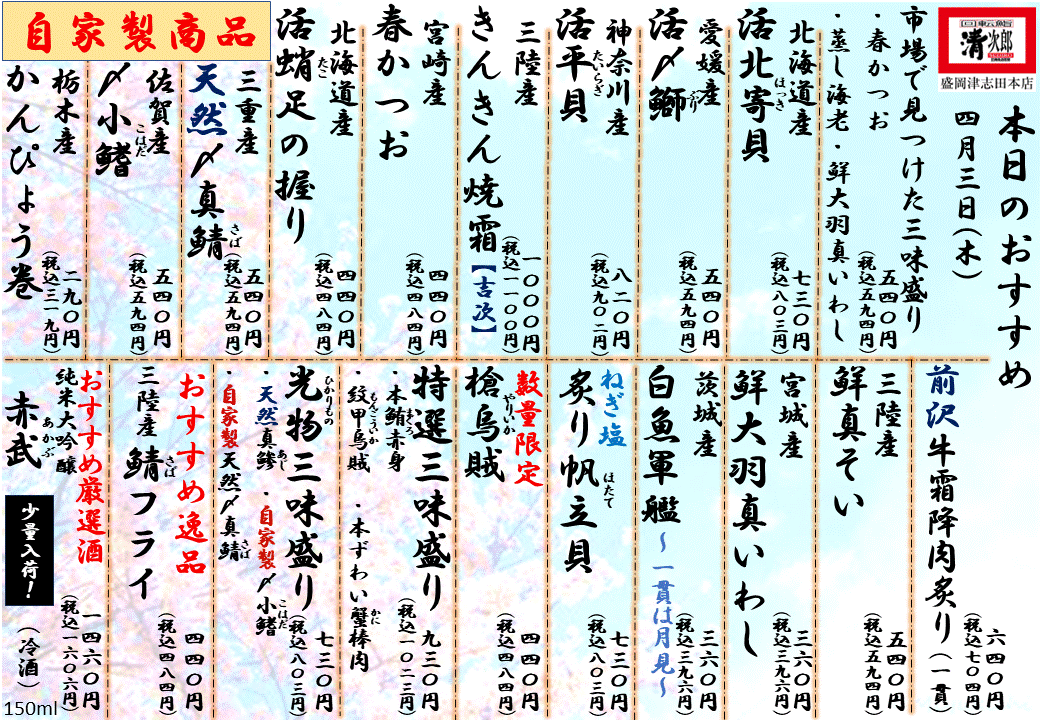 回転鮨
清次郎
盛岡津志田本店
本日のおすすめ
四月三日(木)
市場で見つけた三味盛り
・春かつお
・蒸し海老・鮮大羽真いわし
五四〇円
(税込五九四円)
北海道産
活北寄貝
ほっき
七三〇円
(税込八〇三円)
愛媛産
活〆鰤
ぶり
五四〇円
(税込五九四円)
神奈川産
活平貝
たいらぎ
八二〇円
(税込九〇二円)
三陸産
きんきん焼霜【吉次】
一〇〇〇円
(税込一一〇〇円)
宮崎産
春かつお
四四〇円
(税込四八四円)
北海道産
活蛸足の握り
たこ
四四〇円
(税込四八四円)
自家製商品
三重産
天然〆真鯖
さば
五四〇円
(税込五九四円)
佐賀産
〆小鰭
こはだ
五四〇円
(税込五九四円)
栃木産
かんぴょう巻
二九〇円
(税込三一九円)
前沢牛霜降肉炙り(一貫)
六四〇円
(税込七〇四円)
三陸産
鮮真そい
五四〇円
(税込五九四円)
宮城産
鮮大羽真いわし
三六〇円
(税込三九六円)
茨城産
白魚軍艦~一貫は月見~
三六〇円
(税込三九六円)
ねぎ塩
炙り帆立貝
ほたて
七三〇円
(税込八〇三円)
数量限定
槍烏賊
やりいか
四四〇円
(税込四八四円)
特選三味盛り
・本鮪赤身
まぐろ
・紋甲烏賊・本ずわい蟹棒肉
もんごういか
かに
九三〇円
(税込一〇二三円)
光物三味盛り
ひかりもの
・天然真鯵・自家製〆小鰭
あじ
こはだ
・自家製天然〆真鯖
さば
七三〇円
(税込八〇三円)
おすすめ逸品
三陸産鯖フライ
さば
四四〇円
(税込四八四円)
おすすめ厳選酒
純米大吟醸
赤武
あかぶ
少量入荷!
(冷酒)
一四六〇円
(税込一六〇六円)
150ml